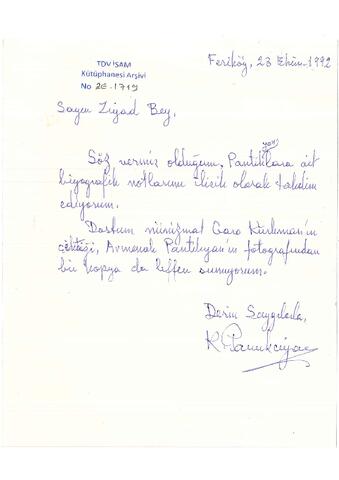 Feriköy, 23 Ekim 1992
TDV İSAM
Kütüphanesi Arşivi
No 2E-1719
Sayın Ziyad Bey,
Söz vermiş olduğum, Pantiklara ait
biyografik notlarımı ilişik olarak takdim
ediyorum.
Dostum nümizmat Garo Kürkman'ın
çektiği, Armenak Pantikyan'ın fotografından
bir kopya da leffen sunuyorum.
Derin Saygılarla,
K. Pamukciyan